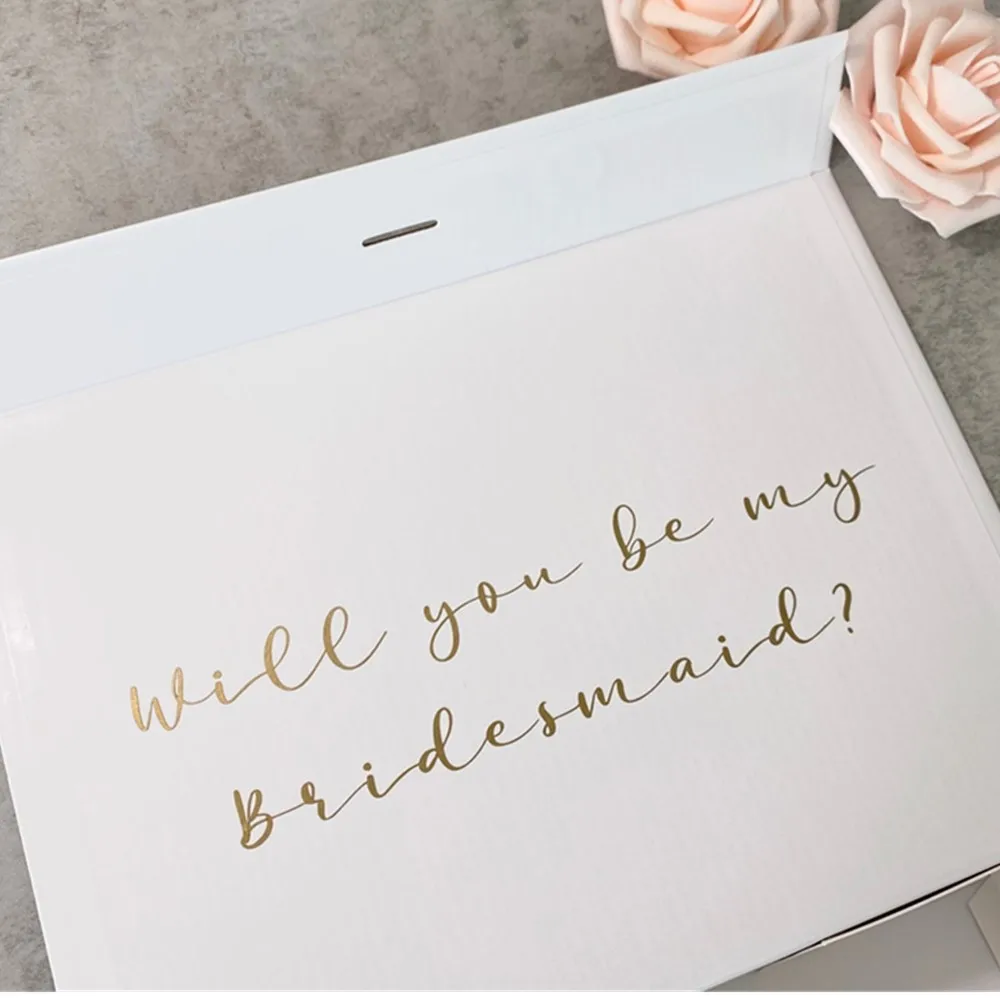 Will you be my
Bridesmaid?